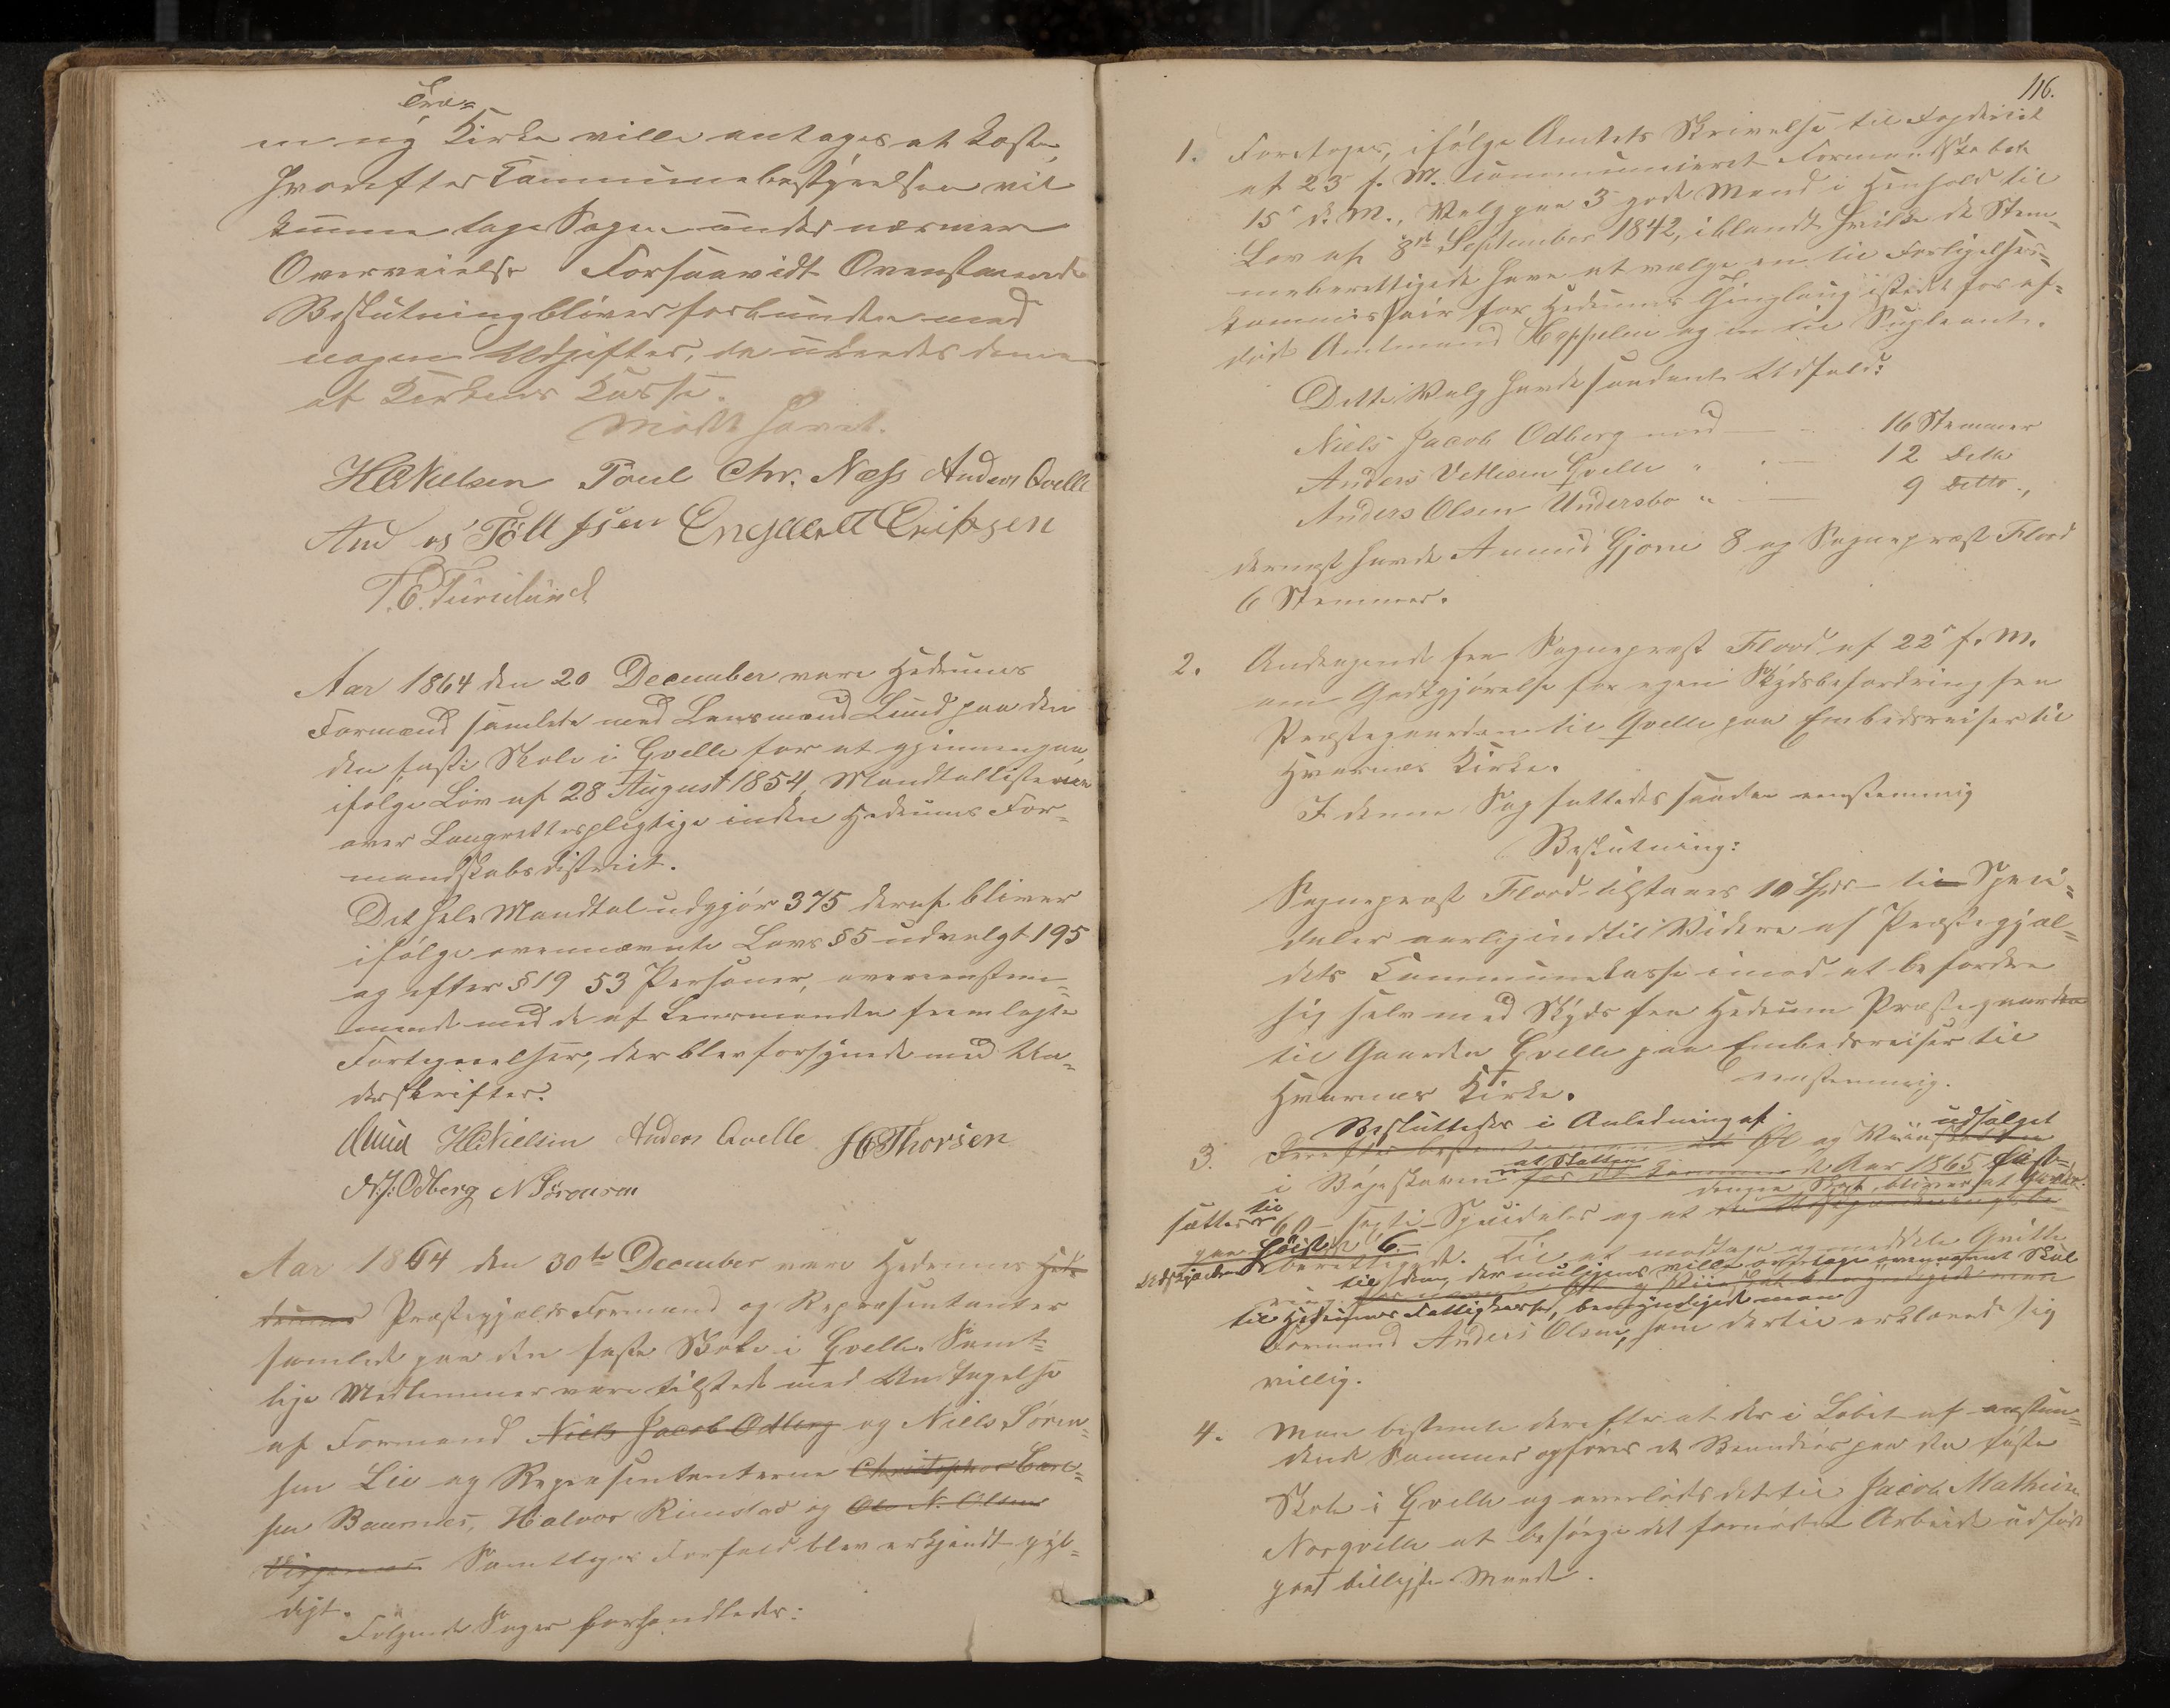 Træ-
en ny Kirke ville antages at koste,
hvorefter Communebestyrelsen vil
kunne tage Sagen under nærmere
Overveielse. Forsaavidt Ovenstaaende
Beslutning bliver forbunden med
nogen Udgifter, da udredes denne
af Kirkens Kasse.
Mødet hævet.
HCNielsen Poul Chr. Næss Anders Qvelle
And os Tollefsen Engebrett Erichsen
T.E. Furulund
Aar 1864 den 20 December vare Hedrums
Formænd samlede med Lensmand Lund paa den
den faste Skole i Qvelle for at gjennemgaa,
ifølge Lov af 28 August 1854, Mandtallisterne
over Laugrettespligtige inden Hedrums For-
mandskabsdistrict.
Det hele Mandtal udgjør 375 deraf bliver
ifølge ovennævnte Lovs § 5 udvalgt 195
og efter § 19 53 Personer, overeenstem-
mende med de af Lensmanden fremlagte
Fortegnelser, der blev forsynede med Un-
derskrifter.
Lund HCNielsen Anders Qvelle HThorsen
N.J. Odberg N Sörensen
Aar 1864 den 30te December vare Hedrums Hed-
drums Præstegjelds Formænd og Repræsentanter
samlede paa den faste Skole i Qvelle. Samt-
lige Medlemmer vare tilstede med Undtagelse
af Formand Niels Jacob Odberg og Niels Sören-
sen Lie og Repræsentanterne Christopher Carl-
sen Baumnes, Halvor Rimstad og Ole N. Olsen
Samtliges Forfald blev erkjendt gyl-
digt.
Følgende Sager forhandledes:
116.
1. Foretoges, ifølge Amtets Skrivelse til Fogderiet
af 23 f. M. communiceret Formandskabet
15 d. M., Valg paa 3 gode Mænd i Henhold til
Lov af 8de September 1842, iblandt hvilke de Stem-
meberettigede have at vælge en til Forligelses-
kommissair for Hedrums Thinglaug istedet for af-
døde Amtmand Heppelen og en til Supleant.
Dette Valg havde saadant Udfald:
Niels Jacob Odberg med — 16 Stemmer
Anders Vetlesen Qvelle " — 12 Dette
Anders Olsen Undersbo " — 9 Detto.,
dernæst havde Amund Gjone 8 og Sognepræst Flood
6 Stemmer.
2. Andragende fra Sognepræst Flood af 22 f. M.
om Godtgjørelse for egen Skydsbefordring fra
Præstegaarden til Qvelle paa Embedsreiser til
Hvarnes Kirke.
I denne Sag fattedes saadan eenstemmig
Beslutning:
Sognepræst Flood tilstaaes 10 Spd — ti Speci-
daler aarlig indtil Videre af Præstegjel-
dets Communekasse imod at befordre
sig selv med Skyds fra Hedrum Præstegaarden
til Gaarden Qvelle paa Embedsreiser til
Hvarnes Kirke. eenstemmig.
Besluttedes i Anledning af udsalget
3. Derefter Øl og Viin
i Bøgeskoven at Skatten for det kommende Aar 1865 fast-
denne Skat bliver at
sættes til 60 — sexti Specidaler og at
høist 6.—
berettiget. Til at modtage og meddele Qvitte-
til dem, der muligens ville erlægge ovennævnt Skat
ring
til Hedrums Fattigkasse, bemyndigede man
Formand Anders Olsen, som dertil erklærede sig
villig.
4. Man bestemte derefter at der i Løbet af næstkom-
mende Sommer opføres et Brændeskjul paa den faste
Skole i Qvelle og overlodes det til Jacob Mathisen
Norqvelle at besørge det fornødne Arbeide udført
paa billigste Maade.